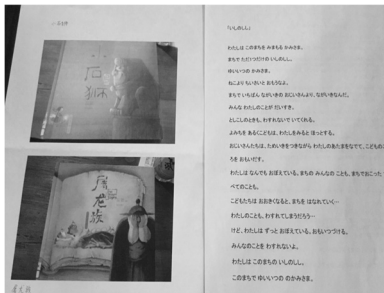 小石狮
屠龙族
「いしのしし」
わたしは このまちを みまもる かみさま。
まちで ただひつだけの いしのしし。
ゆいいつの かみさま。
ねこより ちいさいと おもうなよ。
まちで いちばん ながいきの おじいさんより、ながいきなんだ。
みんな わたしのことが だいすき。
としこしのときも、わすれないで いてくれる。
よみちを あるくこどもは、わたしをみると ほっとする。
おじいさんたちは、ためいきをつきながら わたしのあたまをなでて、こどものこ
ろを おもいだす。
わたしは なんでも おぼえている。まちの みんなの ことも、まちでおこった す
べてのことも。
こどもたちは おおきくなると、まちを はなれていく…
わたしのことも、わすれてしまうだろう…
けど、わたしは ずっと おぼえている。おもいつづける。
みんなのことを わすれないよ。
わたしは このまちの いしのしし。
このまちで ゆいいつの のかみさま。